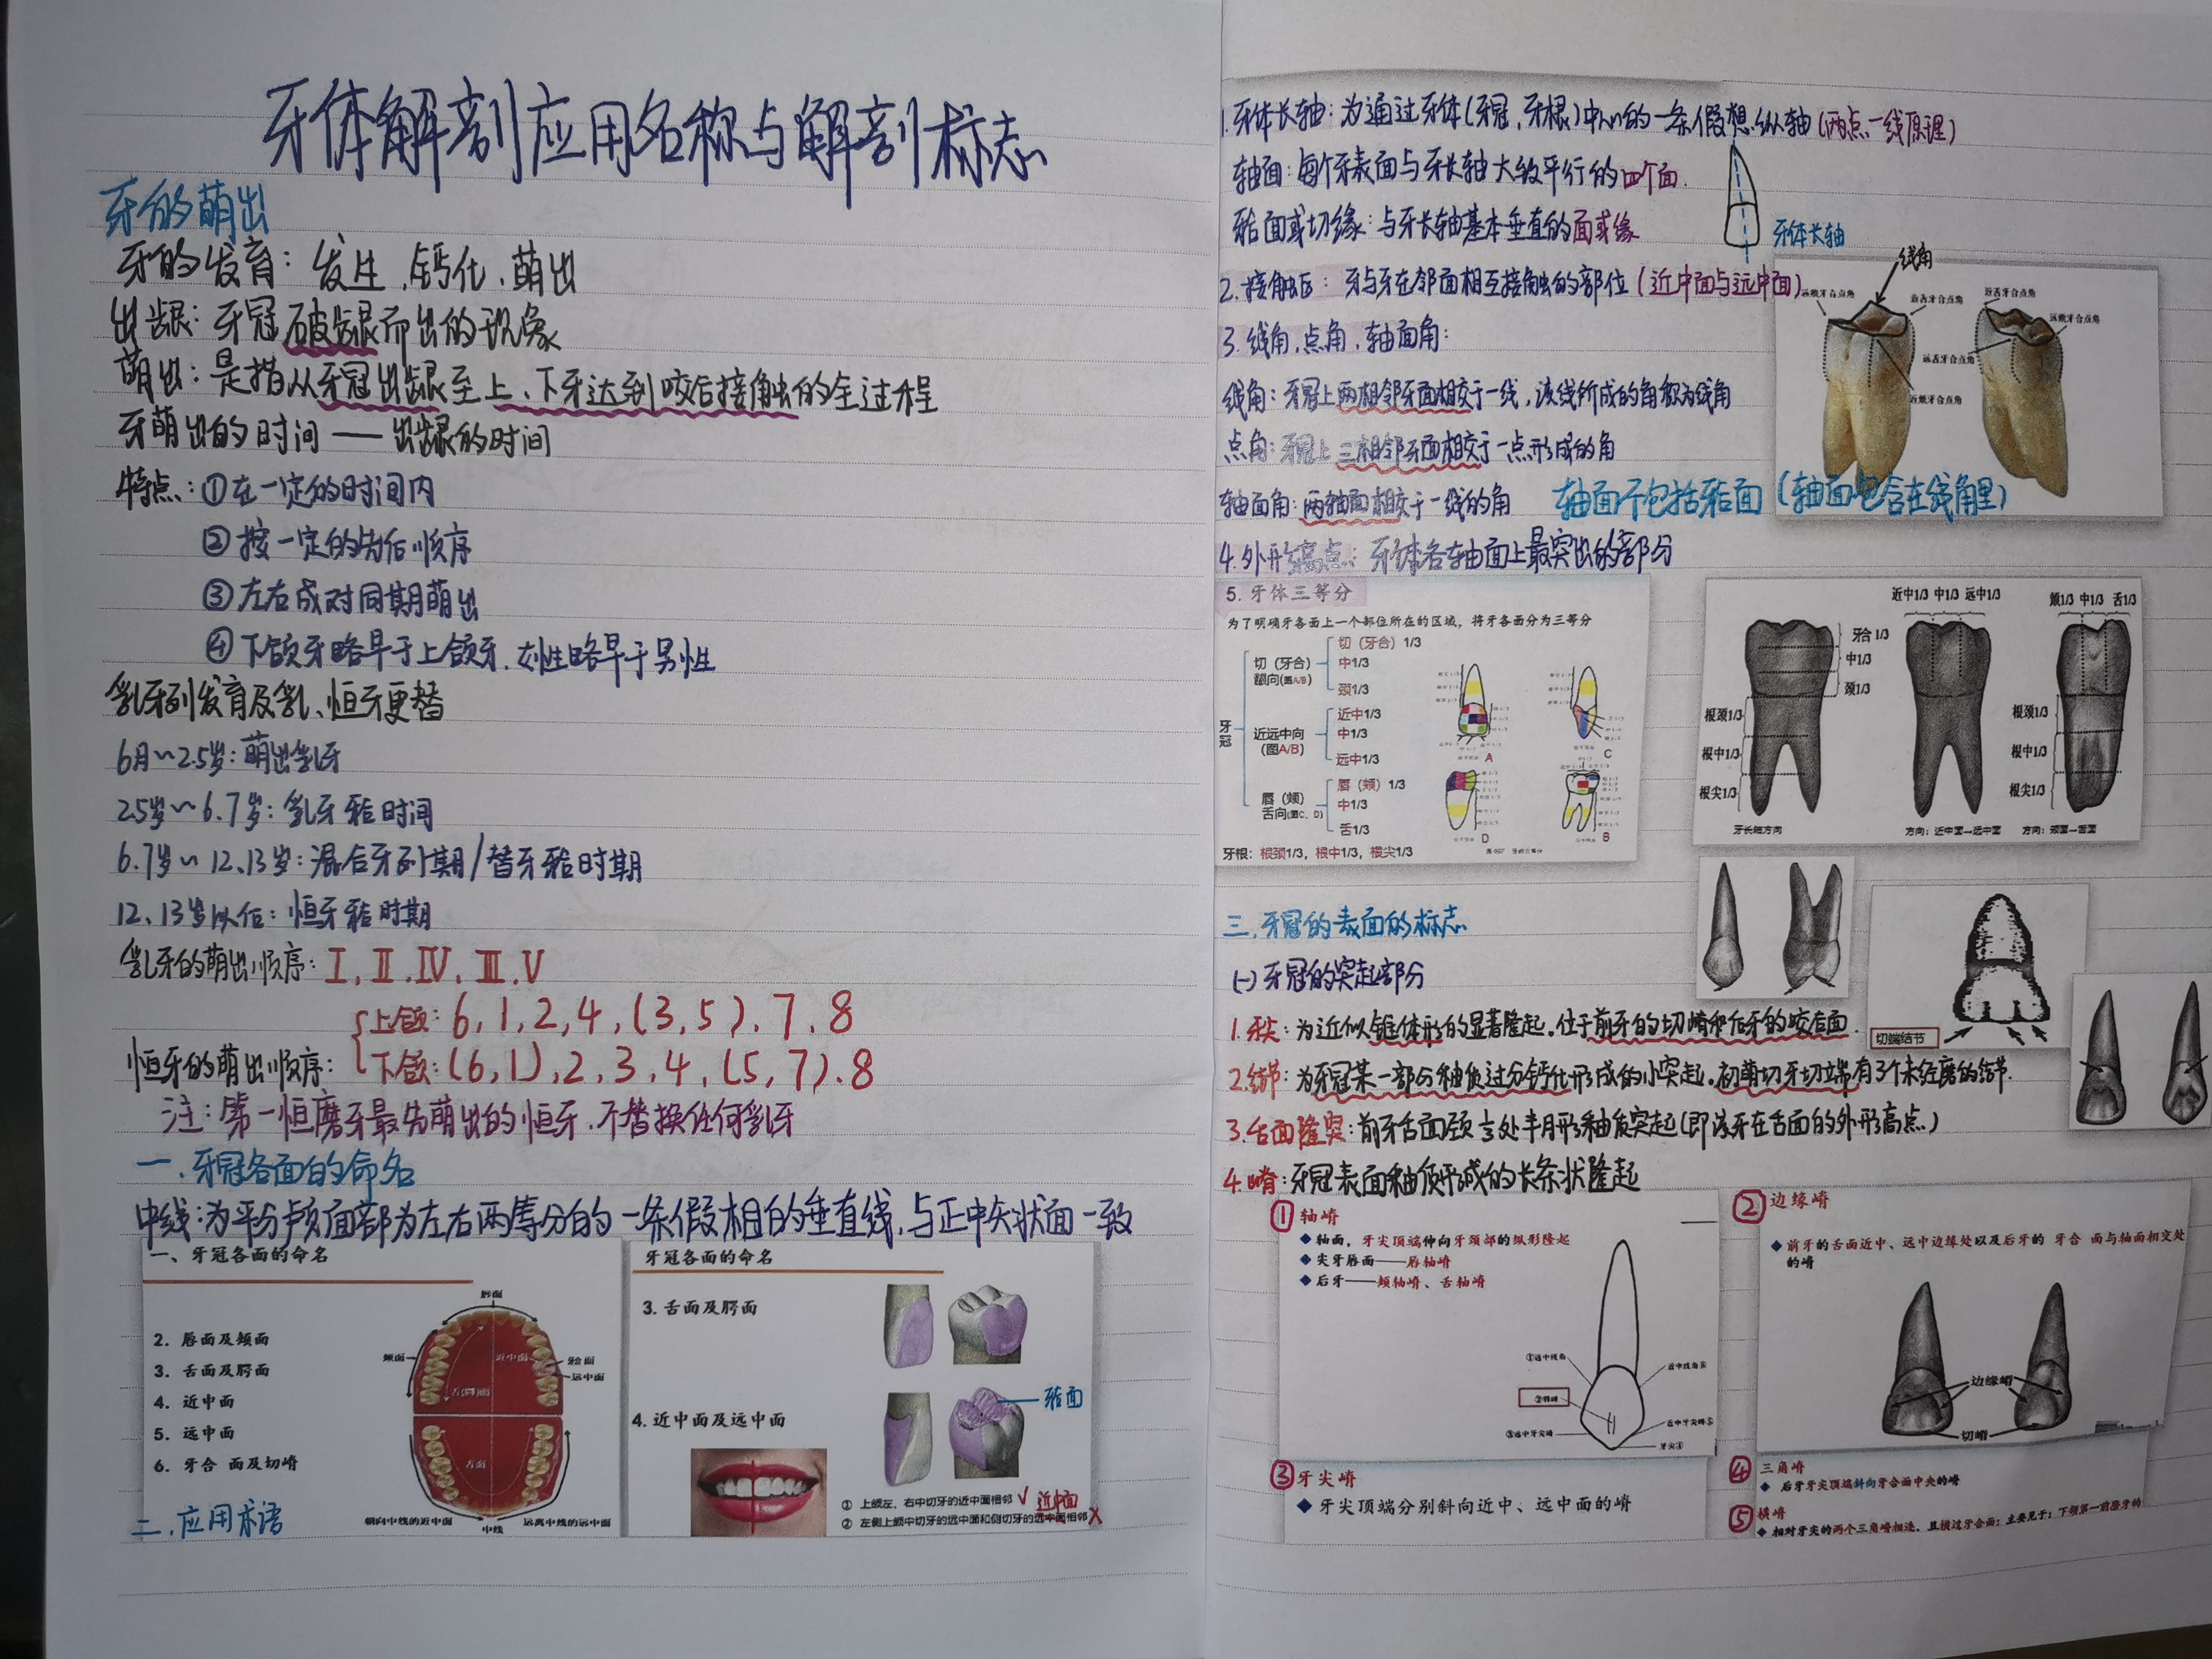 牙体解剖应用名称与解剖标志
牙的萌出
牙的发育：发生、钙化、萌出
出龈：牙冠破龈而出的现象
萌出：是指从牙冠出龈至上、下牙达到咬合接触的全过程
牙萌出的时间——出龈的时间
特点：①在一定的时间内
②按一定的先后顺序
③左右成对同期萌出
④下颌牙略早于上颌牙、女性略早于男性
乳牙列发育及乳、恒牙更替
6月~2.5岁：萌出乳牙
2.5岁~6.7岁：乳牙𬌗时间
6.7岁~12、13岁：混合牙列期/替牙𬌗时期
12、13岁以后：恒牙𬌗时期
乳牙的萌出顺序：Ⅰ、Ⅱ、Ⅳ、Ⅲ、Ⅴ
恒牙的萌出顺序：
上颌：6,1,2,4,(3,5),7,8
下颌：(6,1),2,3,4,(5,7),8
注：第一恒磨牙最先萌出的恒牙、不替换任何乳牙
一、牙冠各面的命名
中线：为平分颅面部为左右两等分的一条假想的垂直线，与正中矢状面一致
一、牙冠各面的命名
2. 唇面及颊面
3. 舌面及腭面
4. 近中面
5. 远中面
6. 牙合 面及切嵴
唇面
颊面
近中面
牙合面
远中面
舌(腭)面
舌面
朝向中线的近中面
中线
远离中线的远中面
牙冠各面的命名
3. 舌面及腭面
4. 近中面及远中面
𬌗面
① 上颌左、右中切牙的近中面相邻 √
近中面
② 左侧上颌中切牙的远中面和侧切牙的远中面相邻 ×
二、应用术语
1. 牙体长轴：为通过牙体(牙冠、牙根)中心的一条假想纵轴(两点一线原理)
轴面：每个牙表面与牙长轴大致平行的四个面
𬌗面或切缘：与牙长轴基本垂直的面或缘
牙体长轴
2. 接触区：牙与牙在邻面相互接触的部位(近中面与远中面)
线角
近舌牙合点角
近舌牙合点角
远颊牙合点角
远舌牙合点角
近颊牙合点角
3. 线角、点角、轴面角：
线角：牙冠上两相邻牙面相交于一线，该线所成的角称为线角
点角：牙冠上三相邻牙面相交于一点形成的角
轴面角：两轴面相交于一线的角
轴面不包括𬌗面(轴面包含在线角里)
4. 外形高点：牙体各轴面上最突出的部分
5. 牙体三等分
为了明确牙各面上一个部位所在的区域，将牙各面分为三等分
牙冠
切（牙合）龈向(图A/B)
切（牙合）1/3
中1/3
颈1/3
近远中向（图A/B）
近中1/3
中1/3
远中1/3
唇（颊）舌向(图C、D)
唇（颊）1/3
中1/3
舌1/3
牙根：根颈1/3，根中1/3，根尖1/3
A
C
D
B
近中1/3 中1/3 远中1/3
颊1/3 中1/3 舌1/3
牙合 1/3
中1/3
颈1/3
根颈1/3
根中1/3
根尖1/3
根颈1/3
根中1/3
根尖1/3
牙长轴方向
方向：近中面→远中面
方向：颊面→舌面
三、牙冠的表面的标志
(一)牙冠的突起部分
1. 牙尖：为近似锥体形的显著隆起。位于前牙的切嵴和后牙的咬合面
切端结节
2. 结节：为牙冠某一部分釉质过分钙化形成的小突起。初萌切牙切端有3个未经磨的结节
3. 舌面隆突：前牙舌面颈1/3处半月形釉质突起(即该牙在舌面的外形高点)
4. 嵴：牙冠表面釉质形成的长条状隆起
① 轴嵴
◆ 轴面，牙尖顶端伸向牙颈部的纵形隆起
◆ 尖牙唇面——唇轴嵴
◆ 后牙——颊轴嵴、舌轴嵴
①远中线角
近中线角⑥
②轴嵴
③远中牙尖嵴
近中牙尖嵴⑤
牙尖④
② 边缘嵴
◆ 前牙的舌面近中、远中边缘处以及后牙的 牙合 面与轴面相交处的嵴
边缘嵴
切嵴
③ 牙尖嵴
◆ 牙尖顶端分别斜向近中、远中面的嵴
④ 三角嵴
◆ 后牙牙尖顶端斜向牙合面中央的嵴
⑤ 横嵴
◆ 相对牙尖的两个三角嵴相连，且横过牙合面；主要见于：下颌第一前磨牙的